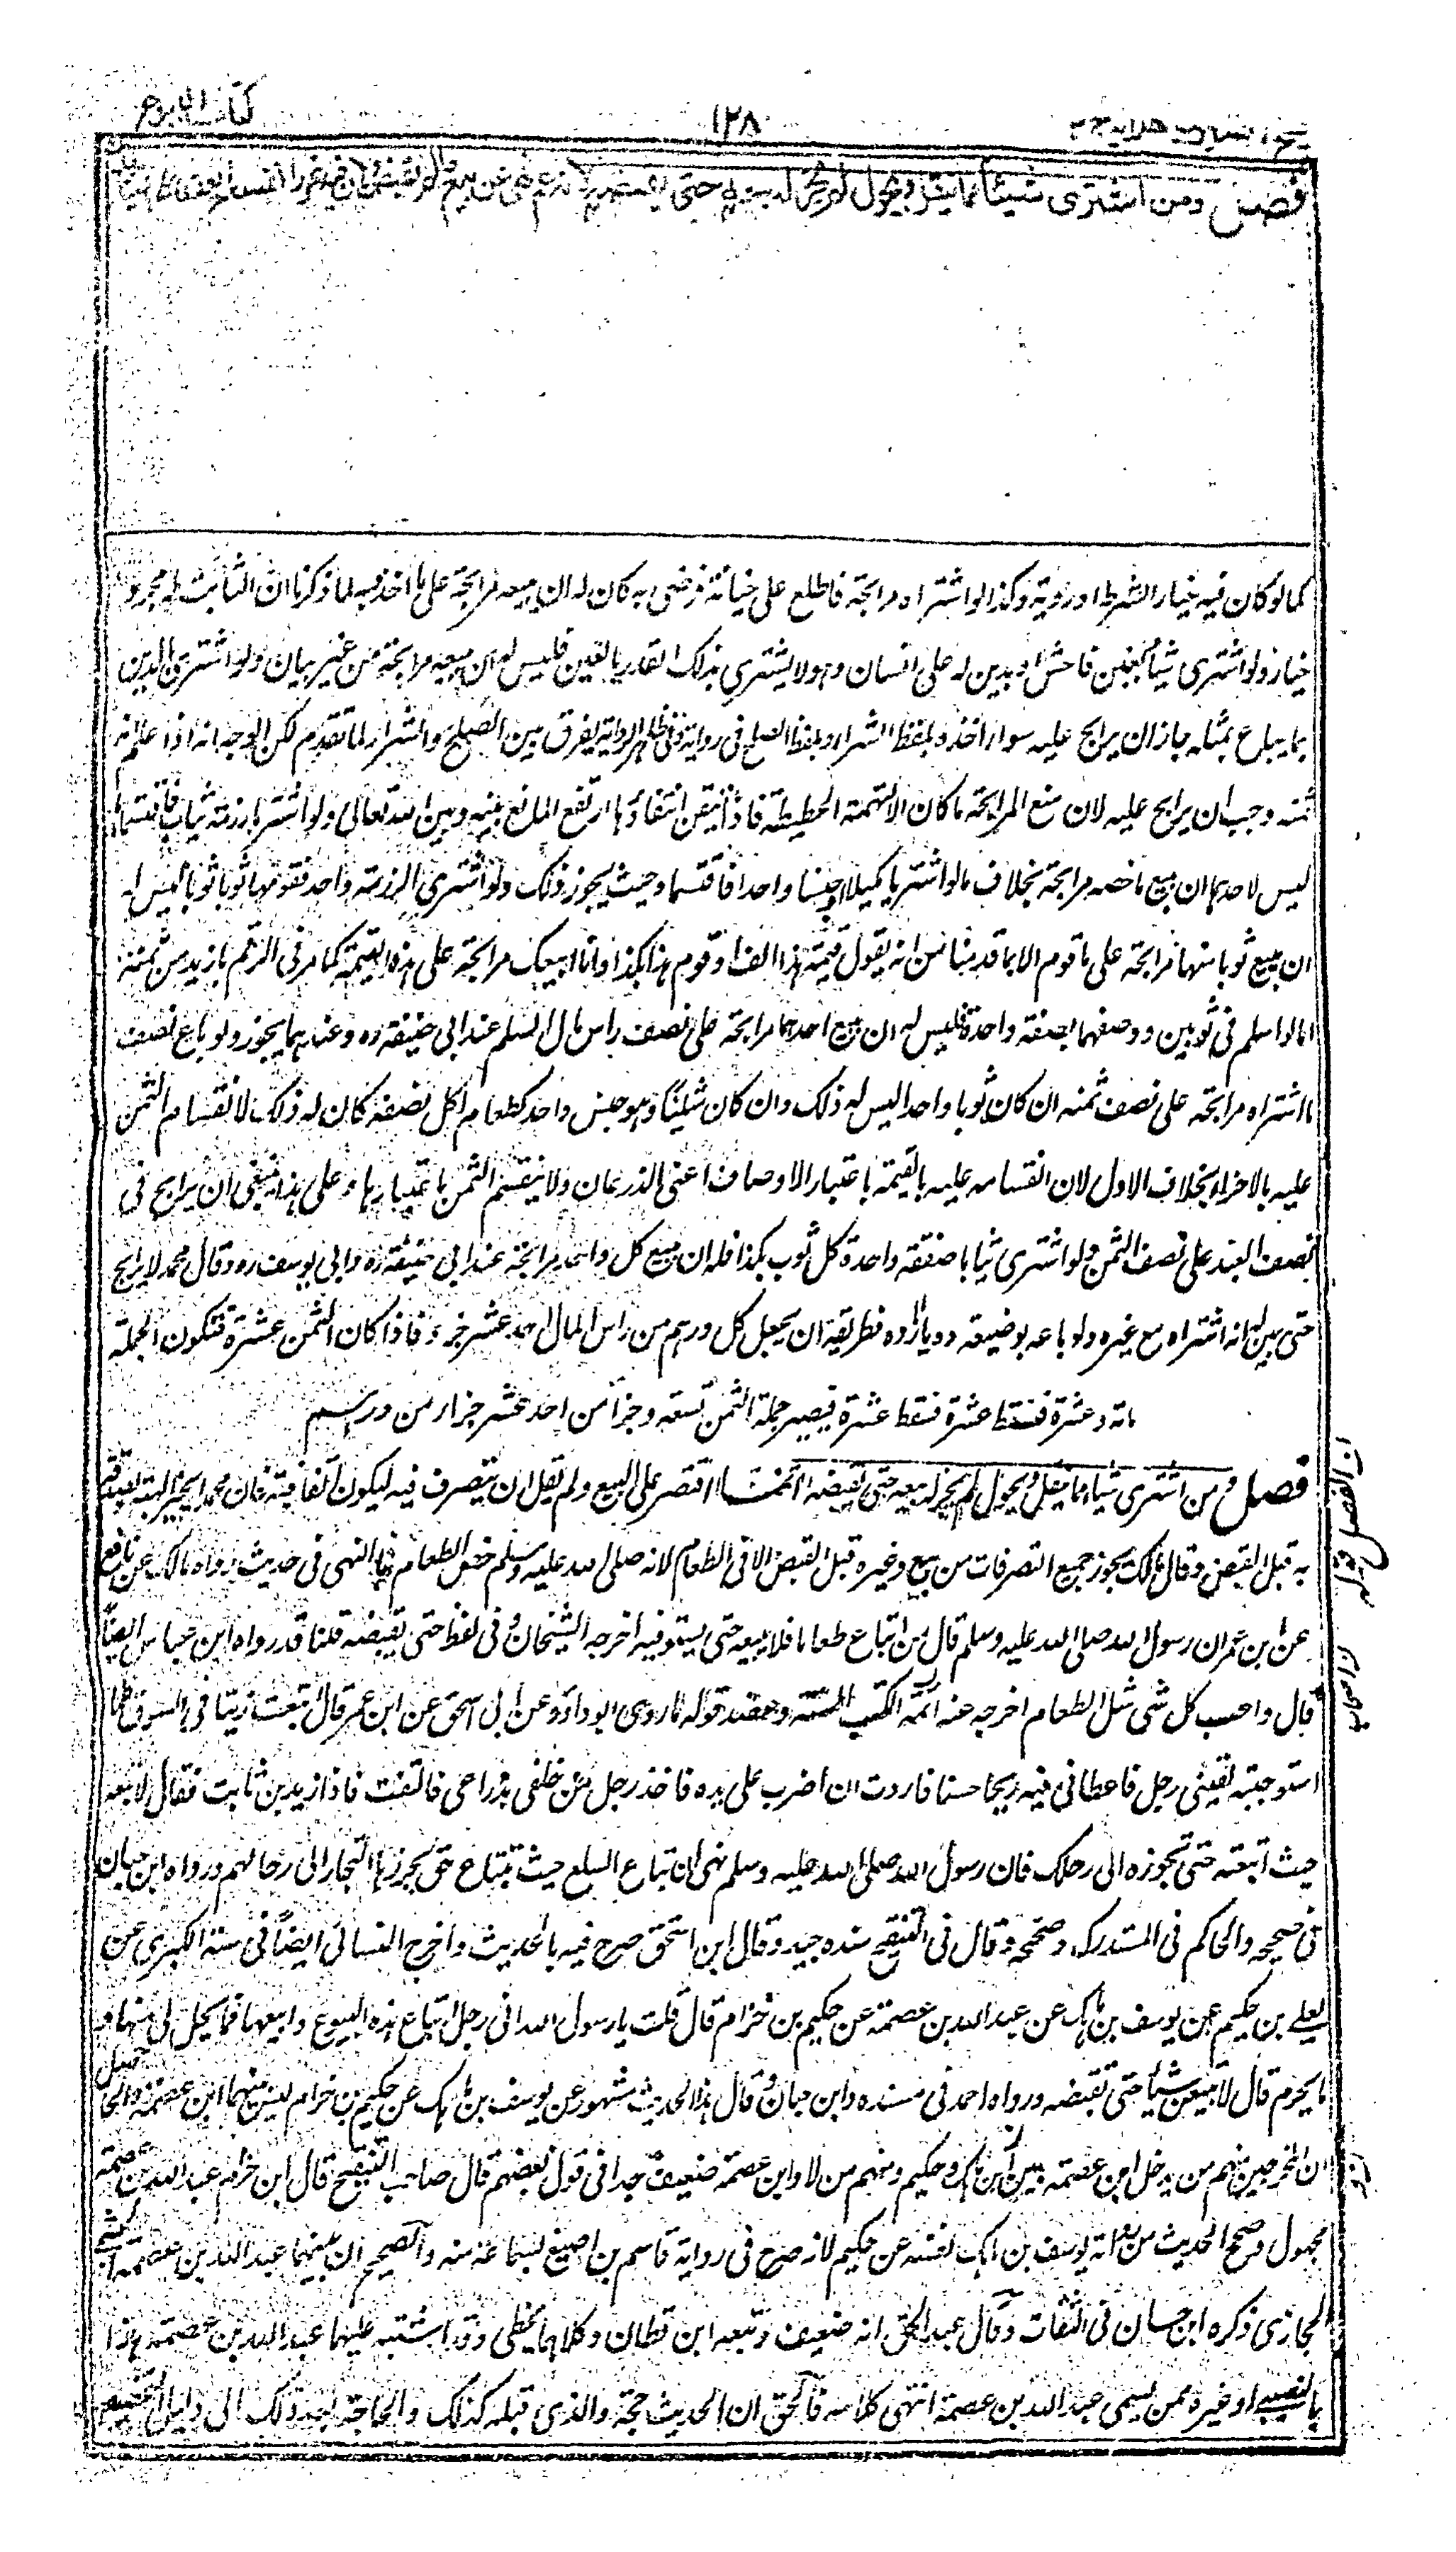 كتاب البيوع
١٢٨
فصل ومن اشترى شيئا مما ينقل ويحول لم يجز له بيعه حتى يقبضه لانه عم نهى عن بيع ما لم يقبض
كما لو كان فيه خيار الشرط او رؤية وكذا لو اشتراه مرابحة فاطلع على خيانة فرضى به كان له ان يبيعه مرابحة على ما اخذه به لما ذكرنا ان الثابت له مجرد
خيار ولو اشترى شيئا بغبن فاحش او بدين له على انسان وهو لا يشترى بذلك القدر بالعين فليس له ان يبيعه مرابحة من غير بيان ولو اشترى بالدين
بما يباع بمثله جاز ان يرابح عليه سواء اخذه بلفظ الشراء او بلفظ الصلح فى رواية وفى ظاهر الرواية يفرق بين الصلح والشراء لما تقدم لكن الوجه انه اذا علم انه
ثمنه وجب ان يرابح عليه لان منع المرابحة ما كان الا لتهمة الحطيطة فاذا تيقن انتفاؤها ارتفع المانع بينه وبين الله تعالى ولو اشتريا رزمة ثياب فاقتسماها
ليس لاحدهما ان يبيع ما خصه مرابحة بخلاف ما لو اشتريا كيليا جنسا واحدا فاقتسماه حيث يجوز ذلك ولو اشترى الرزمة واحد فقومها ثوبا ثوبا ليس له
ان يبيع ثوبا منها مرابحة على ما قوم الا بما قدمنا من انه يقول قيمة هذا الف او قوم هذا بكذا وانا ابيعك مرابحة على هذه القيمة كما مر فى الرقم بازيد من ثمنه
اما لو اسلم فى ثوبين ووصفهما بصفة واحدة فليس له ان يبيع احدهما مرابحة على نصف راس مال السلم عند ابى حنيفة ره وعندهما يجوز ولو باع نصف
ما اشتراه مرابحة على نصف ثمنه ان كان ثوبا واحدا ليس له ذلك وان كان مثليا وهو جنس واحد كطعام اكل نصفه كان له ذلك لانقسام الثمن
عليه بالاجزاء بخلاف الاول لان انقسامه عليه بالقيمة باعتبار الاوصاف اعنى الذرعان ولا ينقسم الثمن باعتبارها وعلى هذا ينبغى ان يرابح فى
نصف العبد على نصف الثمن ولو اشترى ثيابا صفقة واحدة كل ثوب بكذا فله ان يبيع كل واحد مرابحة عند ابى حنيفة ره وابى يوسف ره وقال محمد لا يرابح
حتى يبين انه اشتراه مع غيره ولو باعه بوضيعة ده يازده فطريقه ان يجعل كل درهم من راس المال احد عشر جزء فاذا كان الثمن عشرة فتكون الجملة
مائة وعشرة فتسقط عشرة فيصير جملة الثمن تسعة وجزأ من احد عشر جزأ من درهم
فصل ومن اشترى شيئا مما ينقل ويحول لم يجز له بيعه حتى يقبضه انما اقتصر على البيع ولم يقل ان يتصرف فيه ليكون اتفاقية فان محمدا يجيز الهبة
به قبل القبض وقال مالك يجوز جميع التصرفات من بيع وغيره قبل القبض الا فى الطعام لانه صلى الله عليه وسلم خص الطعام بالنهى فى حديث رواه مالك عن نافع
عن ابن عمر ان رسول الله صلى الله عليه وسلم قال من ابتاع طعاما فلا يبيعه حتى يستوفيه اخرجه الشيخان وفى لفظ حتى يقبضه قلنا قد رواه ابن عباس ايضا
قال واحسب كل شى مثل الطعام اخرجه عنه ائمة الكتب الستة وعضد قوله ما روى ابو داود عن ابن اسحق عن ابن عمر قال ابتعت زيتا فى السوق فلما
استوجبته لقينى رجل فاعطانى فيه ربحا حسنا فاردت ان اضرب على يده فاخذ رجل من خلفى بذراعى فالتفت فاذا زيد بن ثابت فقال لا تبعه
حيث ابتعته حتى تحوزه الى رحلك فان رسول الله صلى الله عليه وسلم نهى ان تباع السلع حيث تبتاع حتى يحوزها التجار الى رحالهم ورواه ابن حبان
فى صحيحه والحاكم فى المستدرك وصححه وقال فى التنقيح سنده جيد وقال ابن اسحق صرح فيه بالحديث واخرج النسائى ايضا فى سننه الكبرى عن
يعلى بن حكيم عن يوسف بن ماهك عن عبد الله بن عصمة عن حكيم بن حزام قال قلت يا رسول الله انى رجل ابتاع هذه البيوع وابيعها فما يحل لى منها وما
يحرم قال لا تبيعن شيئا حتى تقبضه ورواه احمد فى مسنده وابن حبان وقال هذا الحديث مشهور عن يوسف بن ماهك عن حكيم بن حزام ليس بينهما ابن عصمة والحاصل
ان المخرجين منهم من يدخل ابن عصمة بين ابن ماهك وحكيم ومنهم من لا وابن عصمة ضعيف جدا فى قول بعضهم قال صاحب التنقيح قال ابن حزم عبد الله بن عصمة
مجهول وصحح الحديث من رواية يوسف بن ماهك نفسه عن حكيم لانه صرح فى رواية قاسم بن اصبغ بسماعه منه والصحيح ان بينهما عبد الله بن عصمة الجشمى
الحجازى ذكره ابن حبان فى الثقات وقال عبد الحق انه ضعيف وتبعه ابن قطان وكلاهما مخطئ وقد اشتبه عليهما عبد الله بن عصمة هذا
بالنصيبى او غيره ممن يسمى عبد الله بن عصمة انتهى كلامه فالحق ان الحديث حجة والذى قبله كذلك والحاجة بعد ذلك الى دليل التخصيص